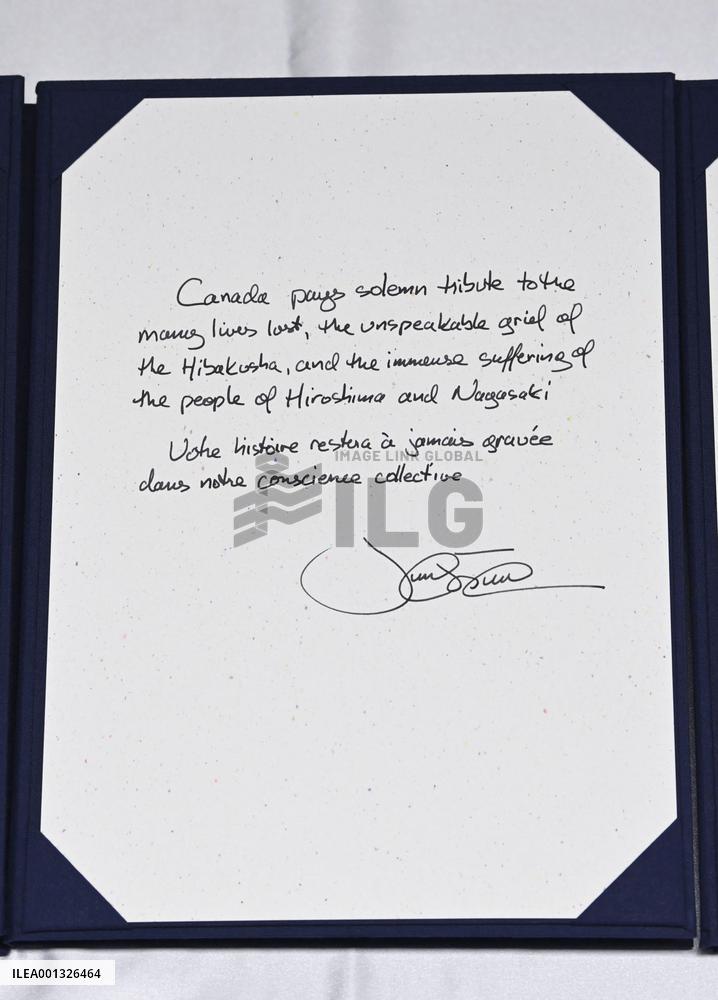 Canada pays solemn tribute to the
many lives lost, the unspeakable grief of
the Hibakusha, and the immense suffering of
the people of Hiroshima and Nagasaki
Votre histoire restera à jamais gravée
dans notre conscience collective
IMAGE LINK GLOBAL
ILG
ILEA001326464